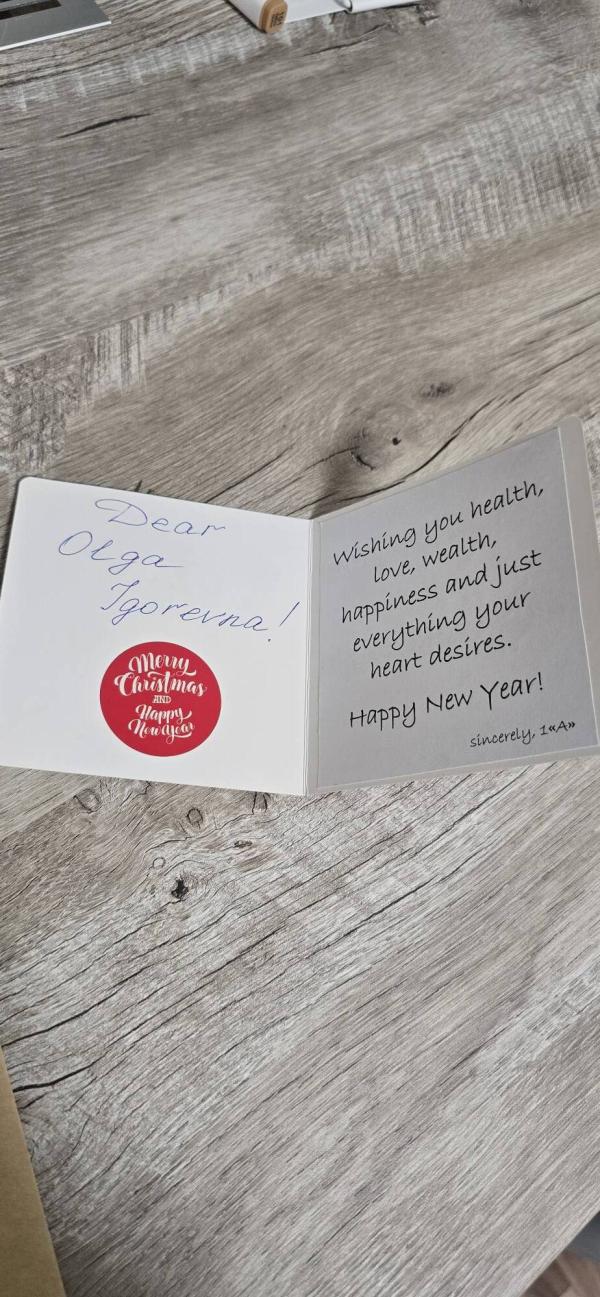 Dear
Olga
Igorevna!
Merry
Christmas
AND
Happy
New Year
Wishing you health,
love, wealth,
happiness and just
everything your
heart desires.
Happy New Year!
sincerely, 1«A»